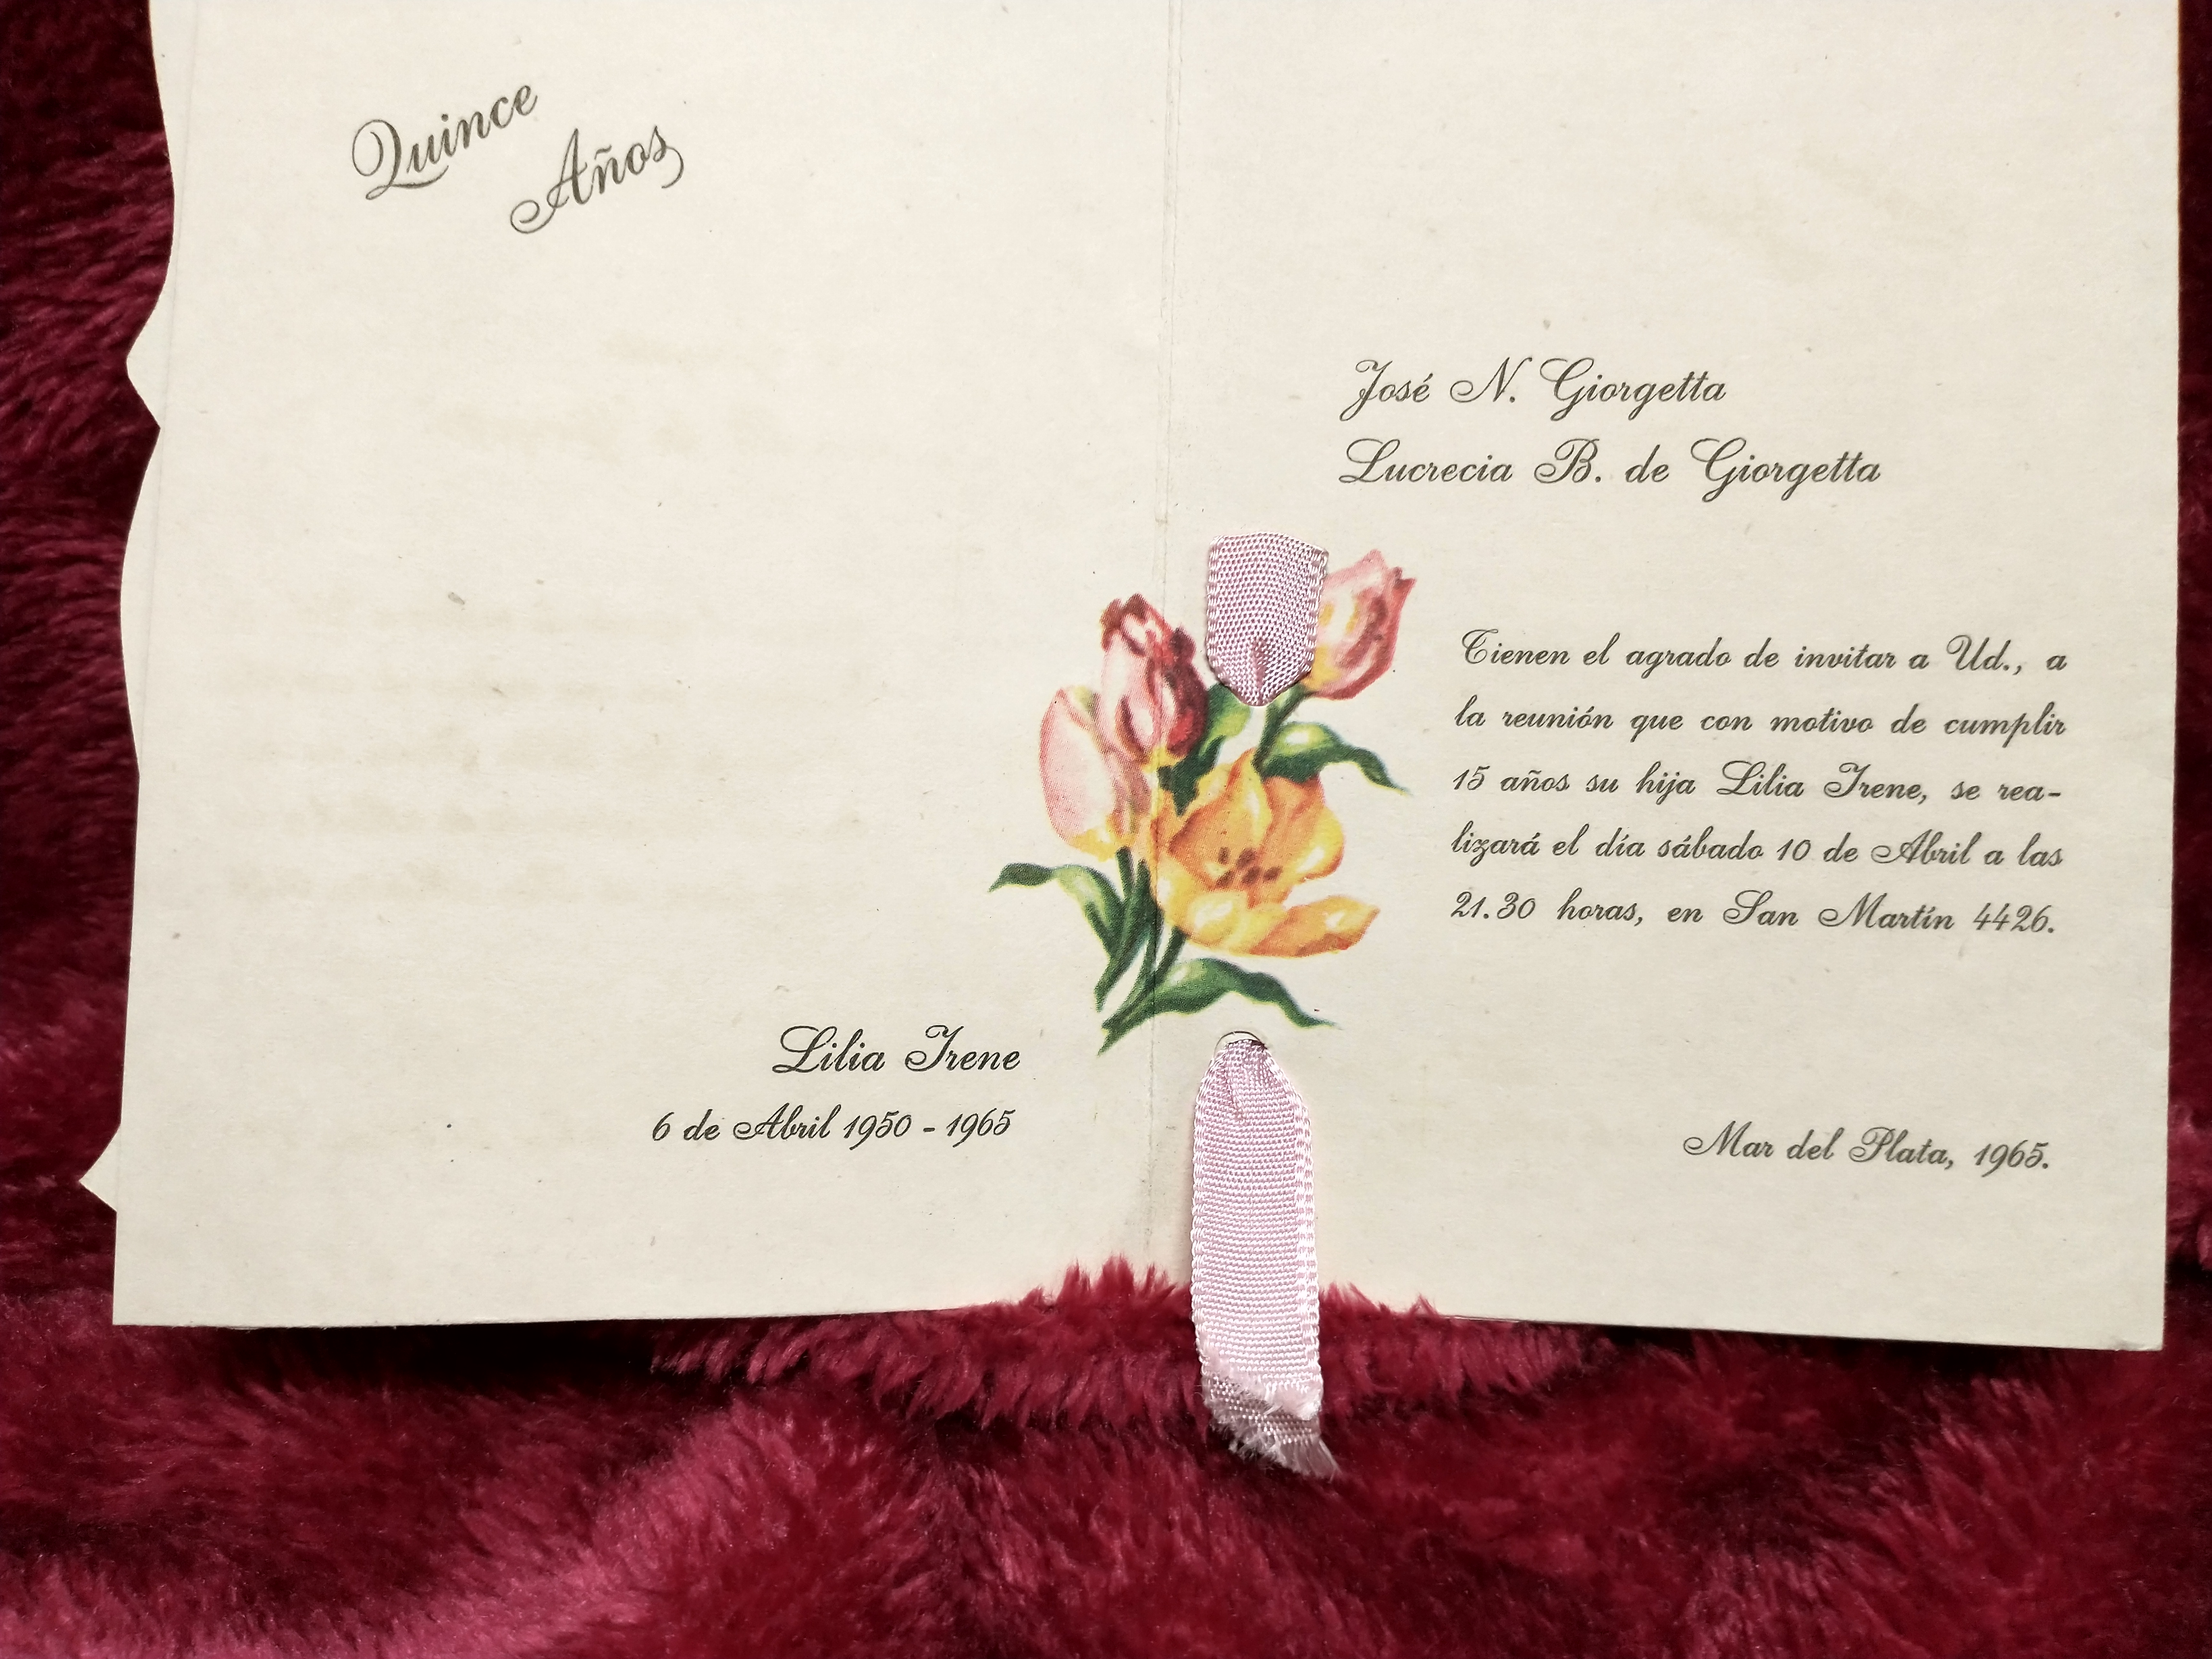 Quince
Años
Lilia Irene
6 de Abril 1950 - 1965
José N. Giorgetta
Lucrecia B. de Giorgetta
Tienen el agrado de invitar a Ud., a
la reunión que con motivo de cumplir
15 años su hija Lilia Irene, se rea-
lizará el día sábado 10 de Abril a las
21.30 horas, en San Martín 4426.
Mar del Plata, 1965.